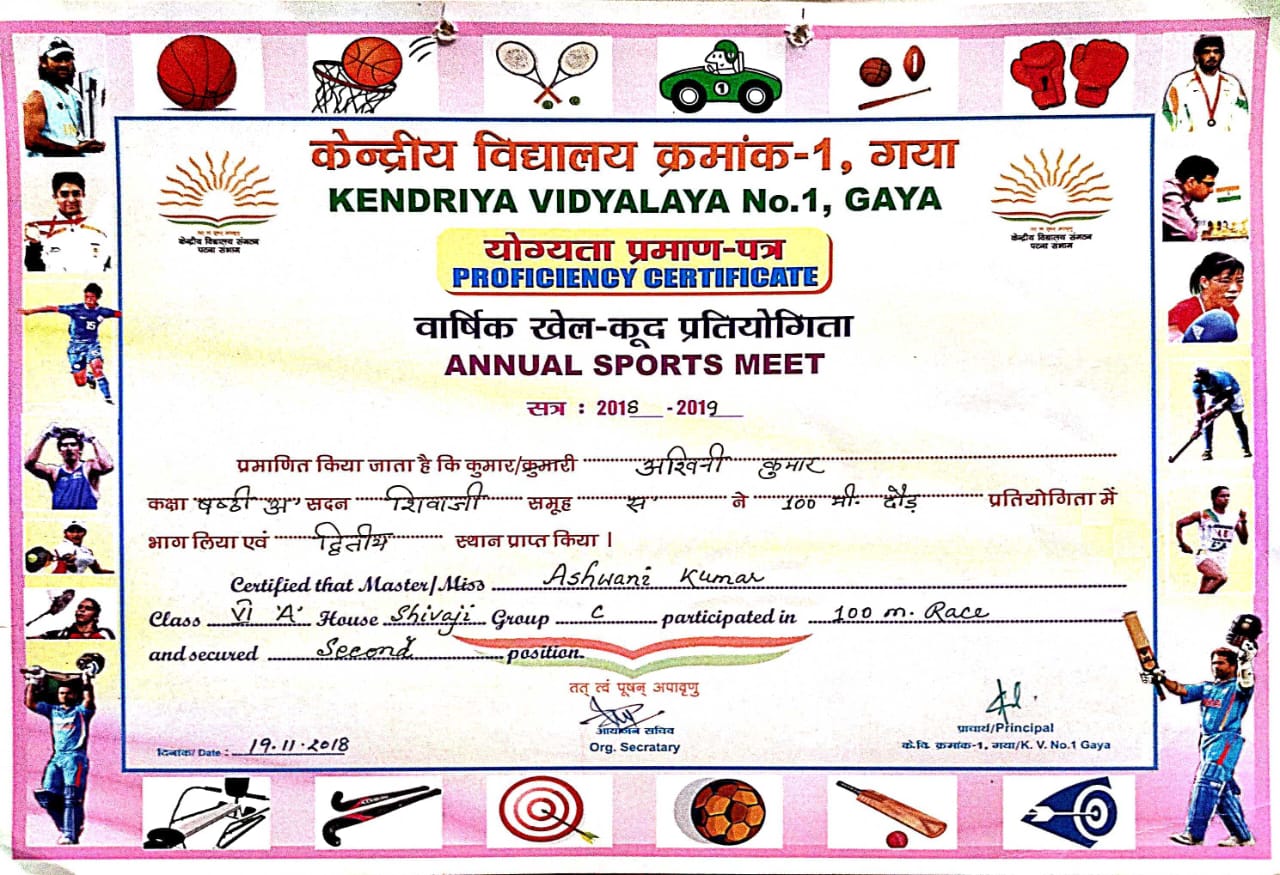 केन्द्रीय विद्यालय क्रमांक-1, गया
KENDRIYA VIDYALAYA No.1, GAYA
केन्द्रीय विद्यालय संगठन
पटना संभाग
केन्द्रीय विद्यालय संगठन
पटना संभाग
योग्यता प्रमाण-पत्र
PROFICIENCY CERTIFICATE
वार्षिक खेल-कूद प्रतियोगिता
ANNUAL SPORTS MEET
सत्र : 2018 - 2019
प्रमाणित किया जाता है कि कुमार/कुमारी अश्विनी कुमार
कक्षा षष्ठी अ सदन शिवाजी समूह स ने 100 मी. दौड़ प्रतियोगिता में
भाग लिया एवं द्वितीय स्थान प्राप्त किया ।
Certified that Master/Miss Ashwani Kumar
Class VI 'A' House Shivaji Group C participated in 100 m. Race
and secured Second position.
तत् त्वं पूषन् अपावृणु
आयोजन सचिव
Org. Secratary
प्राचार्य/Principal
के.वि. क्रमांक-1, गया/K. V. No.1 Gaya
दिनांक/ Date : 19.11.2018